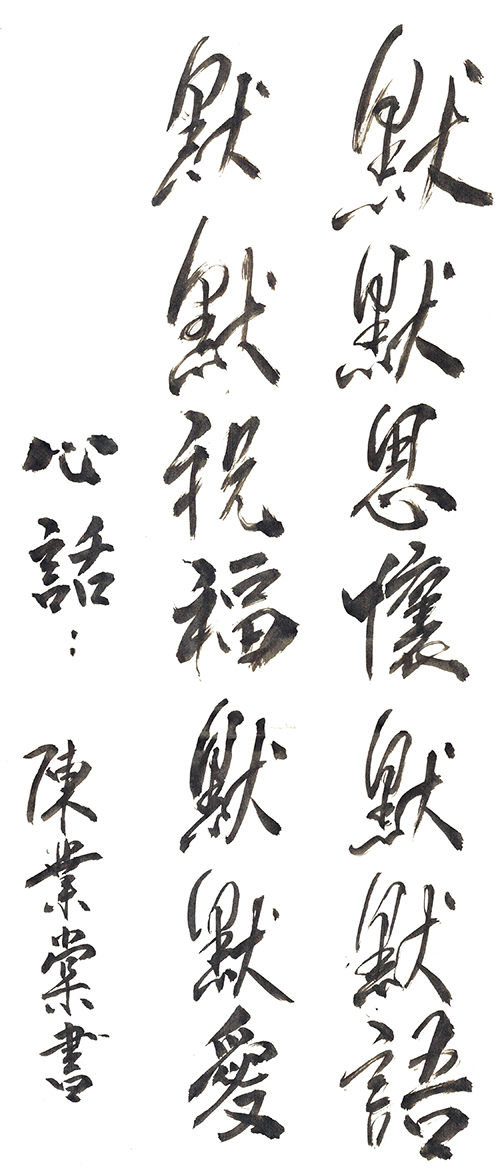 默默思懷默默語
默默祝福默默愛
心話：陳業棠書